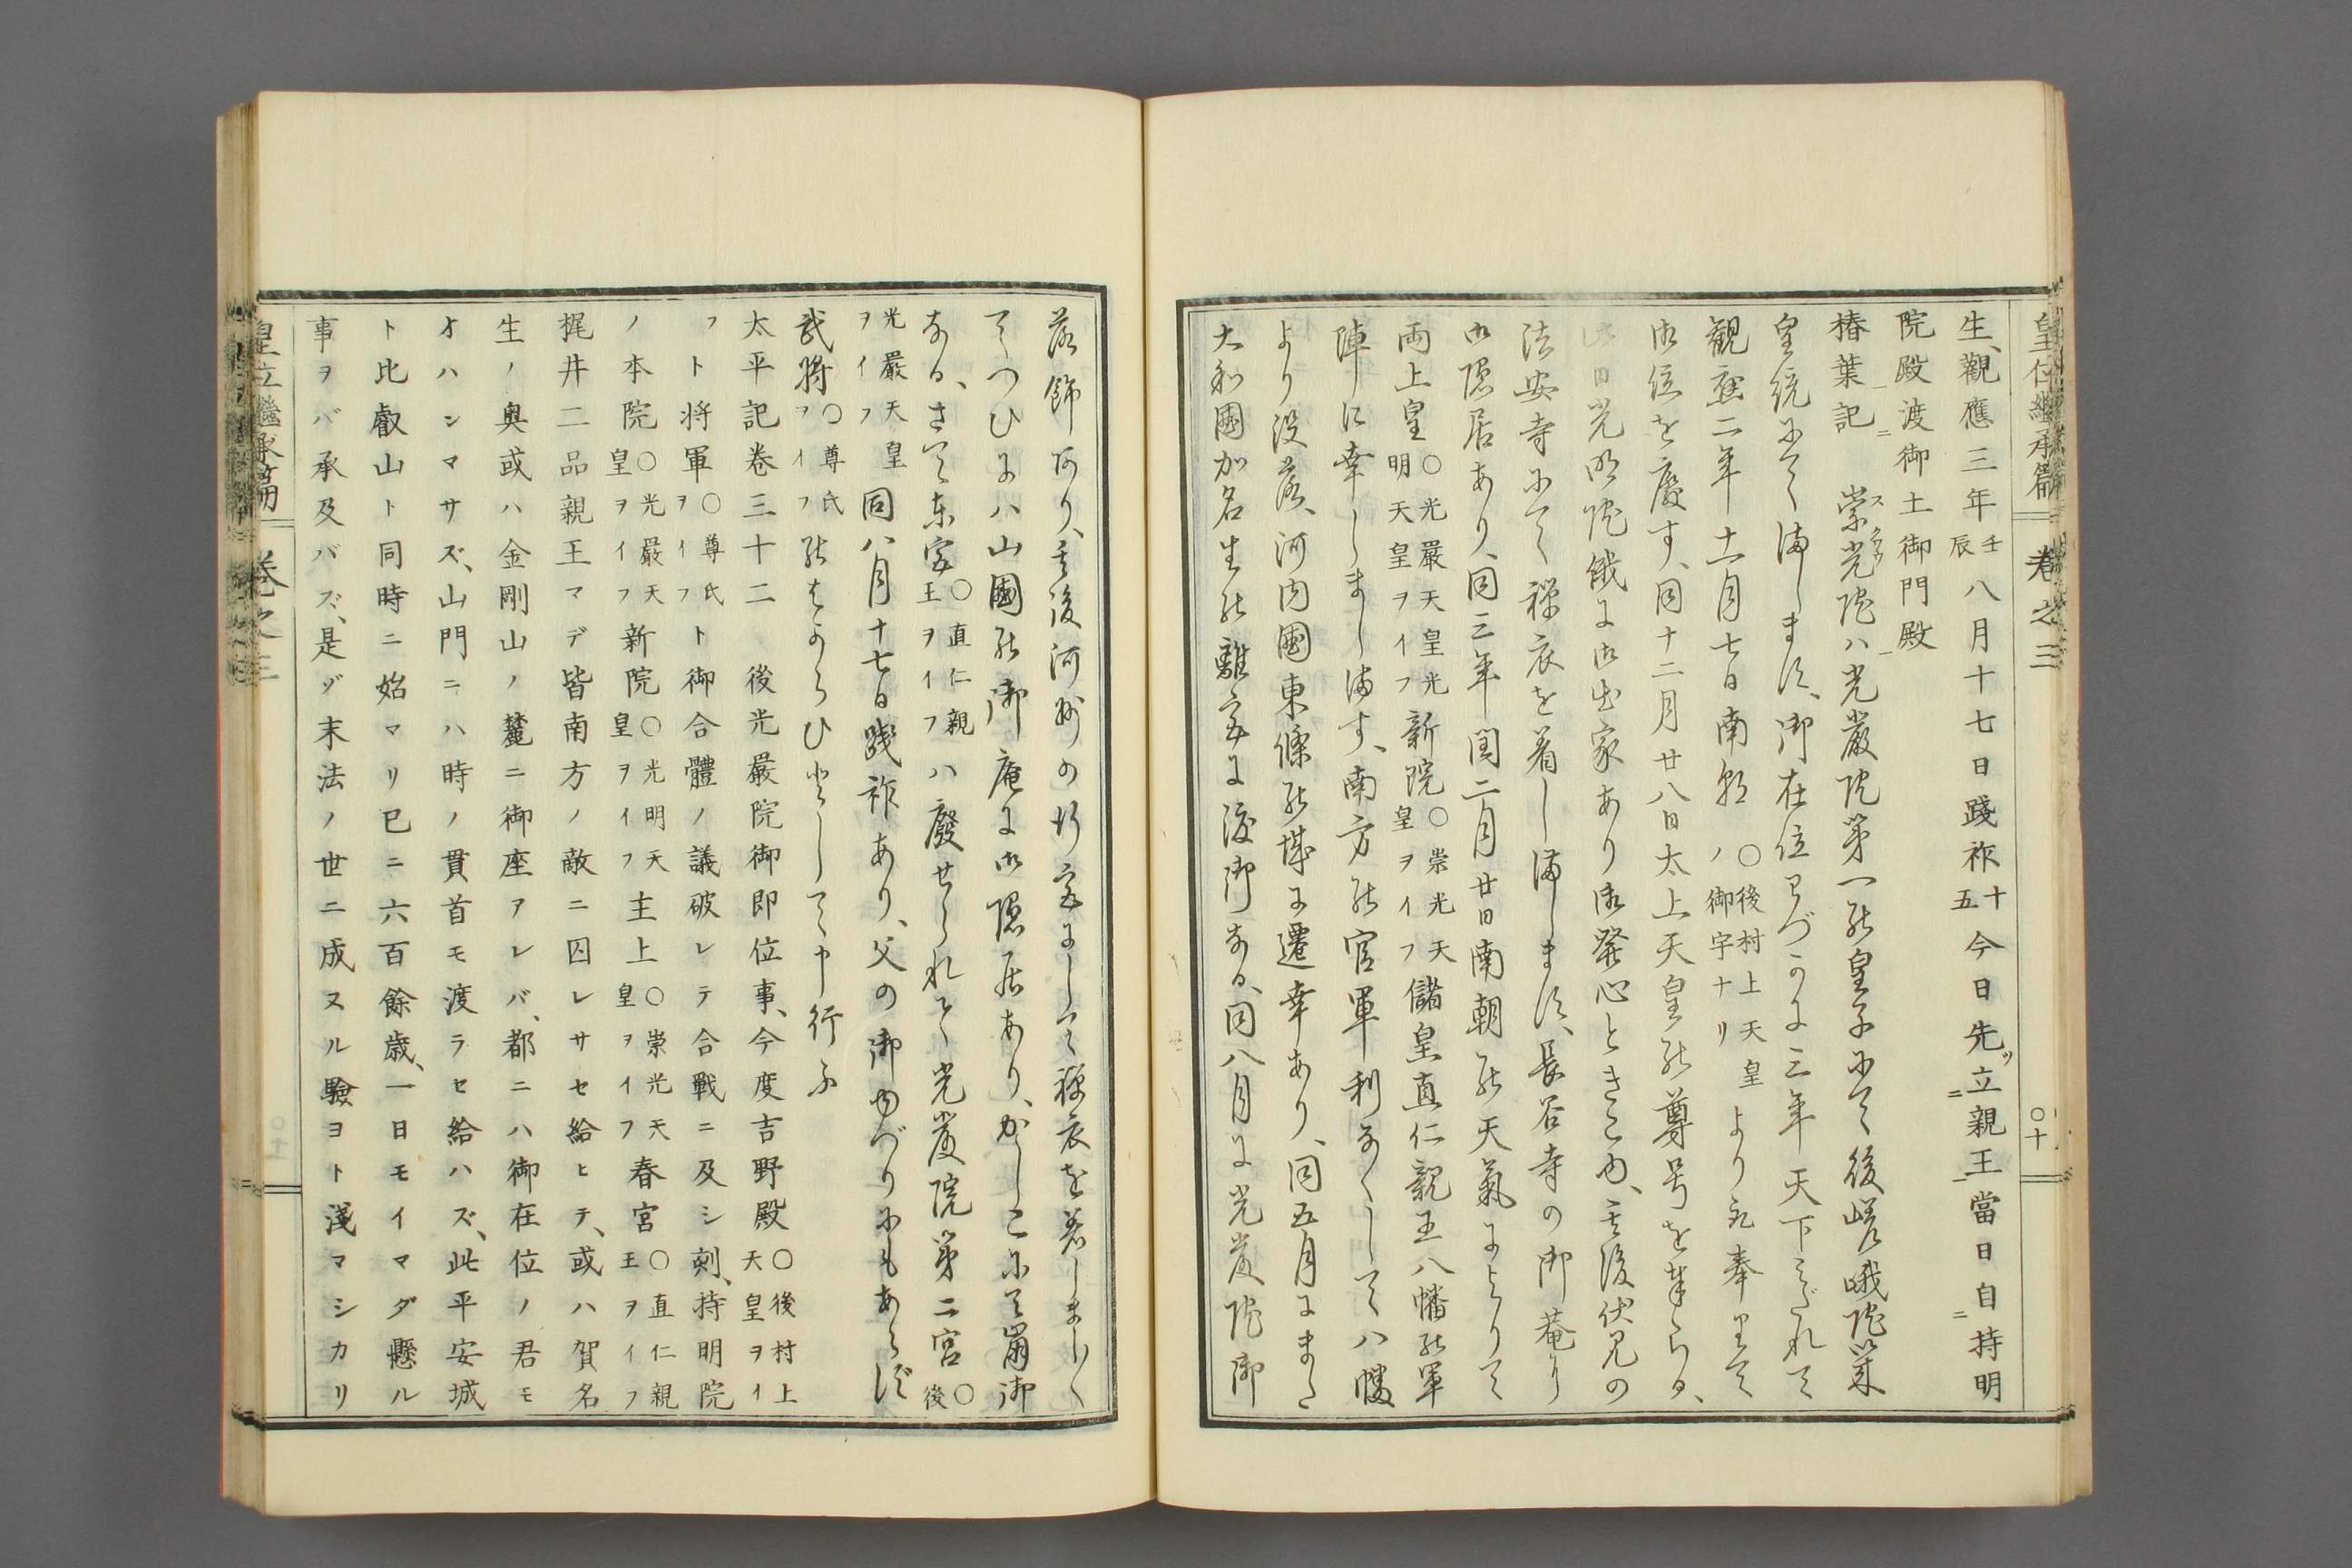 皇位繼承篇 卷之三 〇十
生、觀應三年壬辰八月十七日踐祚十五今日先ツ立親王當日自持明
院殿渡御土御門殿
椿葉記 崇光院ハ光嚴院第一の皇子にて後嵯峨院以来
皇統にて満します、御在位わづかに三年天下みだれて
觀應二年十一月七日南朝〇後村上天皇ノ御宇ナリより取奉りて
御位を廢す、同十二月廿八日太上天皇の尊号を奉らる、
此日光明院俄に御出家あり御發心ときこゆ、其後伏見の
法安寺にて禪衣を着し満します、長谷寺の御菴り
御隱居あり、同三年閏二月廿日南朝の天氣によりて
両上皇〇光嚴天皇光明天皇ヲイフ新院〇崇光天皇ヲイフ儲皇直仁親王八幡の軍
陣に幸しまし満す、南方の官軍利なくして八幡
より没落、河内國東條の城に遷幸あり、同五月にまた
大和國加名生の離宮に渡御なる、同八月に光嚴院御
落飾あり、其後河州の行宮にして禪衣を着しましく
てつひに八山國の御庵に御隱居あり、かしこにて崩御
なる、さて東宮〇直仁親王ヲイフハ廢せられて光嚴院第二宮〇後
光嚴天皇ヲイフ同八月十七日踐祚あり、父の御ゆづりにもあらず
武將〇尊氏ヲイフのはからひとして申行ふ
太平記卷三十二 後光嚴院御即位事、今度吉野殿〇後村上天皇ヲイ
フト將軍〇尊氏ヲイフト御合體ノ議破レテ合戰ニ及シ刻、持明院
ノ本院〇光嚴天皇ヲイフ新院〇光明天皇ヲイフ主上〇崇光天皇ヲイフ春宮〇直仁親王ヲイフ
梶井二品親王マデ皆南方ノ敵ニ囚レサセ給ヒテ、或ハ賀名
生ノ奥或ハ金剛山ノ麓ニ御座アレバ、都ニハ御在位ノ君モ
オハシマサズ、山門ニハ時ノ貫首モ渡ラセ給ハズ、此平安城
ト比叡山ト同時ニ始マリ已ニ六百餘歳、一日モイマダ懸ル
事ヲバ承及バズ、是ゾ末法ノ世ニ成ヌル驗ヨト淺マシカリ
皇位繼承篇 卷之三